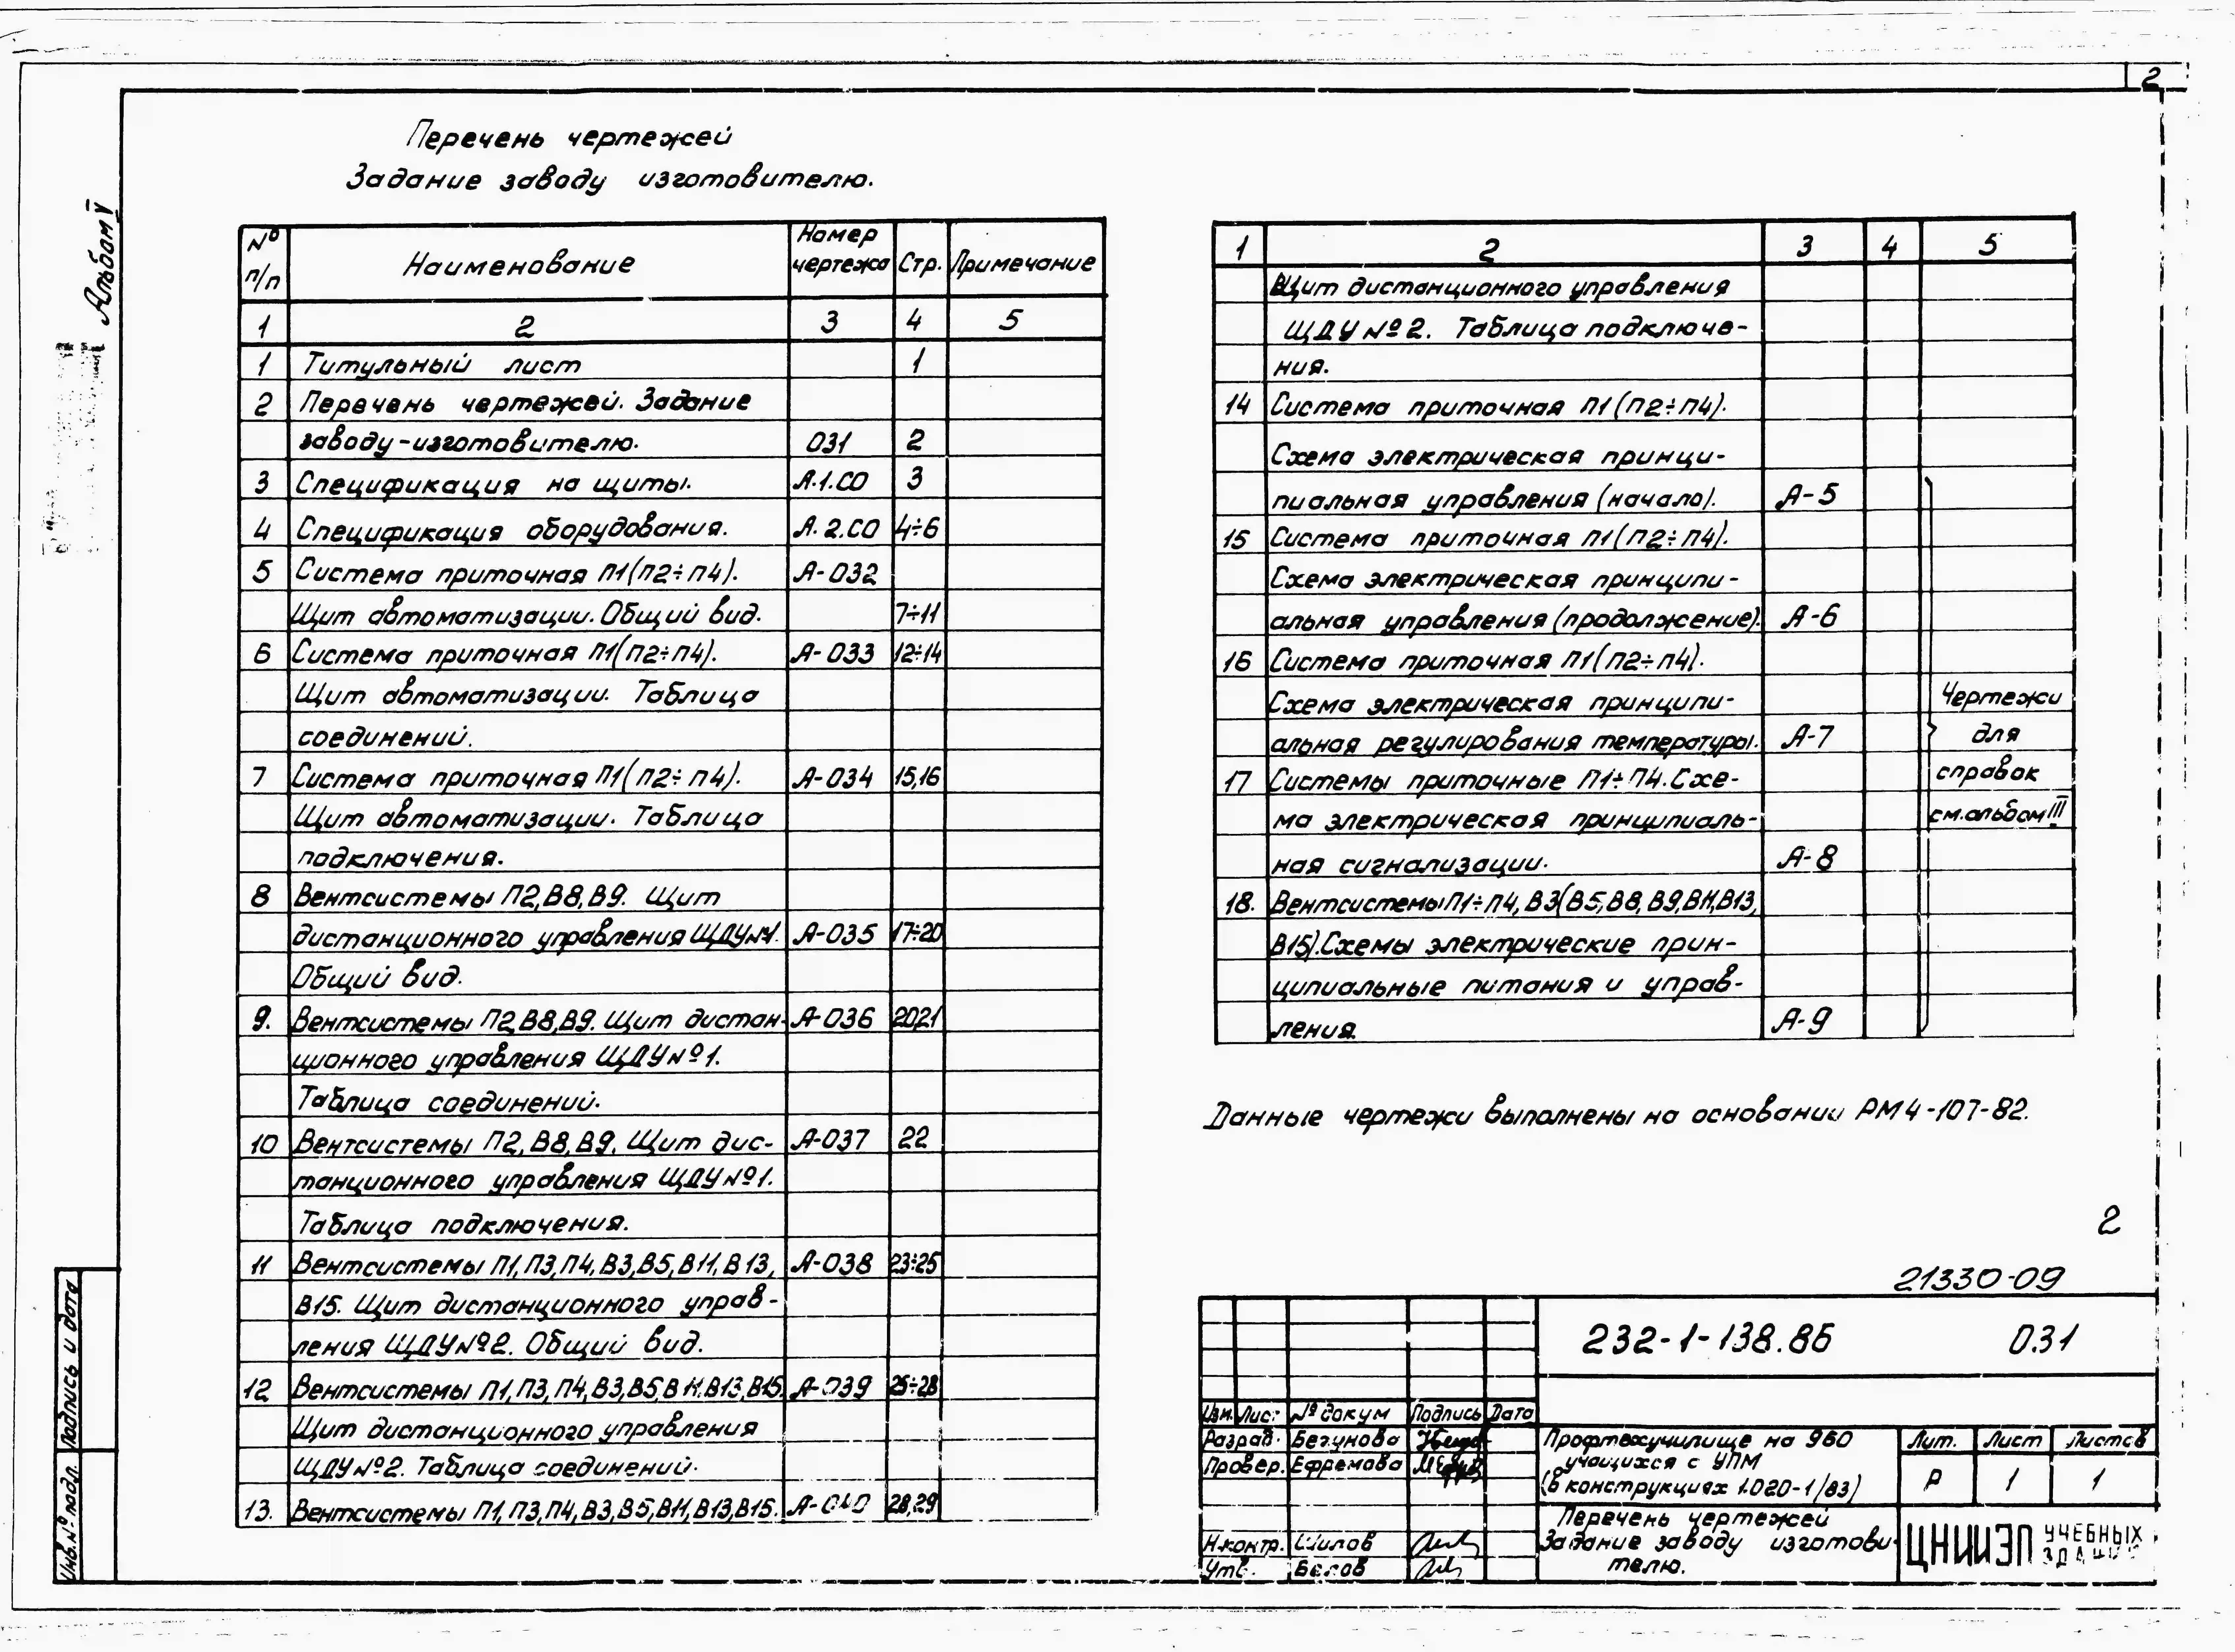 2
Альбом V
Перечень чертежей
Задание заводу изготовителю.
№ п/п Наименование Номер чертежа Стр. Примечание
1 2 3 4 5
1 Титульный лист 1
2 Перечень чертежей. Задание
заводу-изготовителю. 031 2
3 Спецификация на щиты. А.1.СО 3
4 Спецификация оборудования. А.2.СО 4÷6
5 Система приточная П1(П2÷П4). А-032
Щит автоматизации. Общий вид. 7÷11
6 Система приточная П1(П2÷П4). А-033 12÷14
Щит автоматизации. Таблица
соединений.
7 Система приточная П1(П2÷П4). А-034 15,16
Щит автоматизации. Таблица
подключения.
8 Вентсистемы П2,В8,В9. Щит
дистанционного управления ЩДУ№1. А-035 17÷20
Общий вид.
9. Вентсистемы П2,В8,В9. Щит дистан- А-036 20,21
ционного управления ЩДУ№1.
Таблица соединений.
10 Вентсистемы П2,В8,В9. Щит дис- А-037 22
танционного управления ЩДУ№1.
Таблица подключения.
11 Вентсистемы П1,П3,П4,В3,В5,В11,В13, А-038 23÷25
В15. Щит дистанционного управ-
ления ЩДУ№2. Общий вид.
12 Вентсистемы П1,П3,П4,В3,В5,В11,В13,В15. А-039 25÷28
Щит дистанционного управления
ЩДУ№2. Таблица соединений.
13. Вентсистемы П1,П3,П4,В3,В5,В11,В13,В15. А-040 28,29
1 2 3 4 5
Щит дистанционного управления
ЩДУ№2. Таблица подключе-
ния.
14 Система приточная П1(П2÷П4).
Схема электрическая принци-
пиальная управления (начало). А-5
15 Система приточная П1(П2÷П4).
Схема электрическая принципи-
альная управления (продолжение). А-6
16 Система приточная П1(П2÷П4).
Схема электрическая принципи-
альная регулирования температуры. А-7
17 Системы приточные П1÷П4. Схе-
ма электрическая принципиаль-
ная сигнализации. А-8
18. Вентсистемы П1÷П4, В3(В5,В8,В9,В11,В13,
В15). Схемы электрические прин-
ципиальные питания и управ-
ления. А-9
Чертежи
для
справок
см.альбом III
Данные чертежи выполнены на основании РМ4-107-82.
2
21330-09
232-1-138.86 031
Изм. Лист № докум Подпись Дата
Разраб. Бегунова
Провер. Ефремова
Н.контр. Шилов
Утв. Белов
Профтехучилище на 960
учащихся с УПМ
(в конструкциях 1.020-1/83)
Лит. Лист Листов
Р 1 1
Перечень чертежей
Задание заводу изготови-
телю.
ЦНИИЭП УЧЕБНЫХ
ЗДАНИЙ
Подпись и дата
Инв.№ подл.